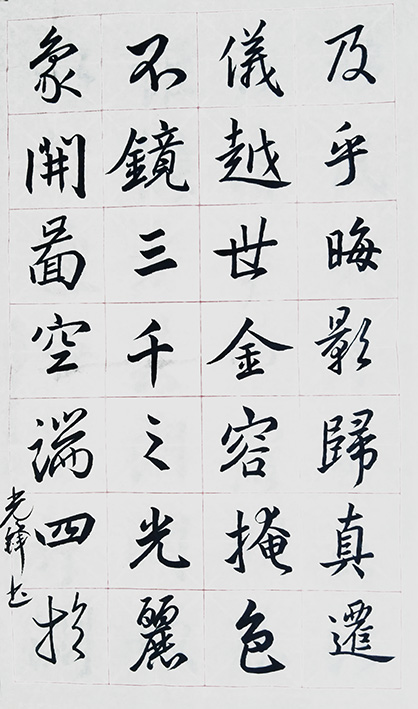 及乎晦影歸真遷
儀越世金容掩色
不鏡三千之光麗
象開圖空端四扵
光书